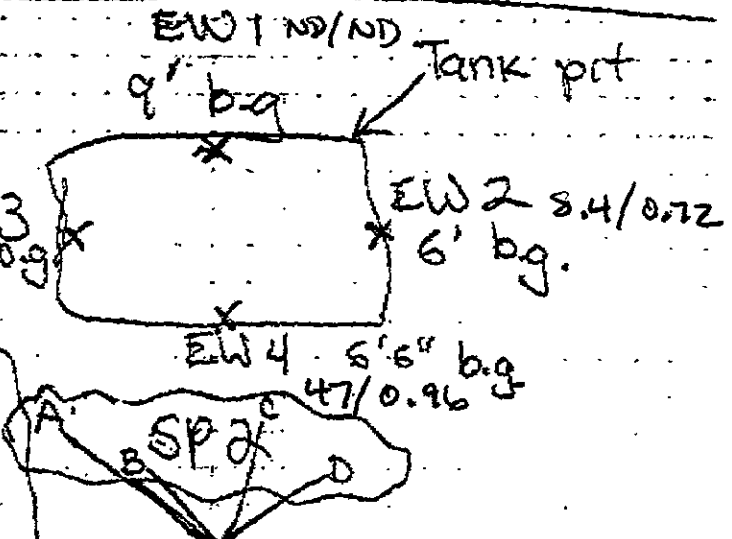 EW 1 ND/ND
9' b.g
Tank pit
3
b.g.
EW 2 8.4/0.72
6' b.g.
EW 4 5'6" b.g
47/0.96
SP 2
A
B
C
D